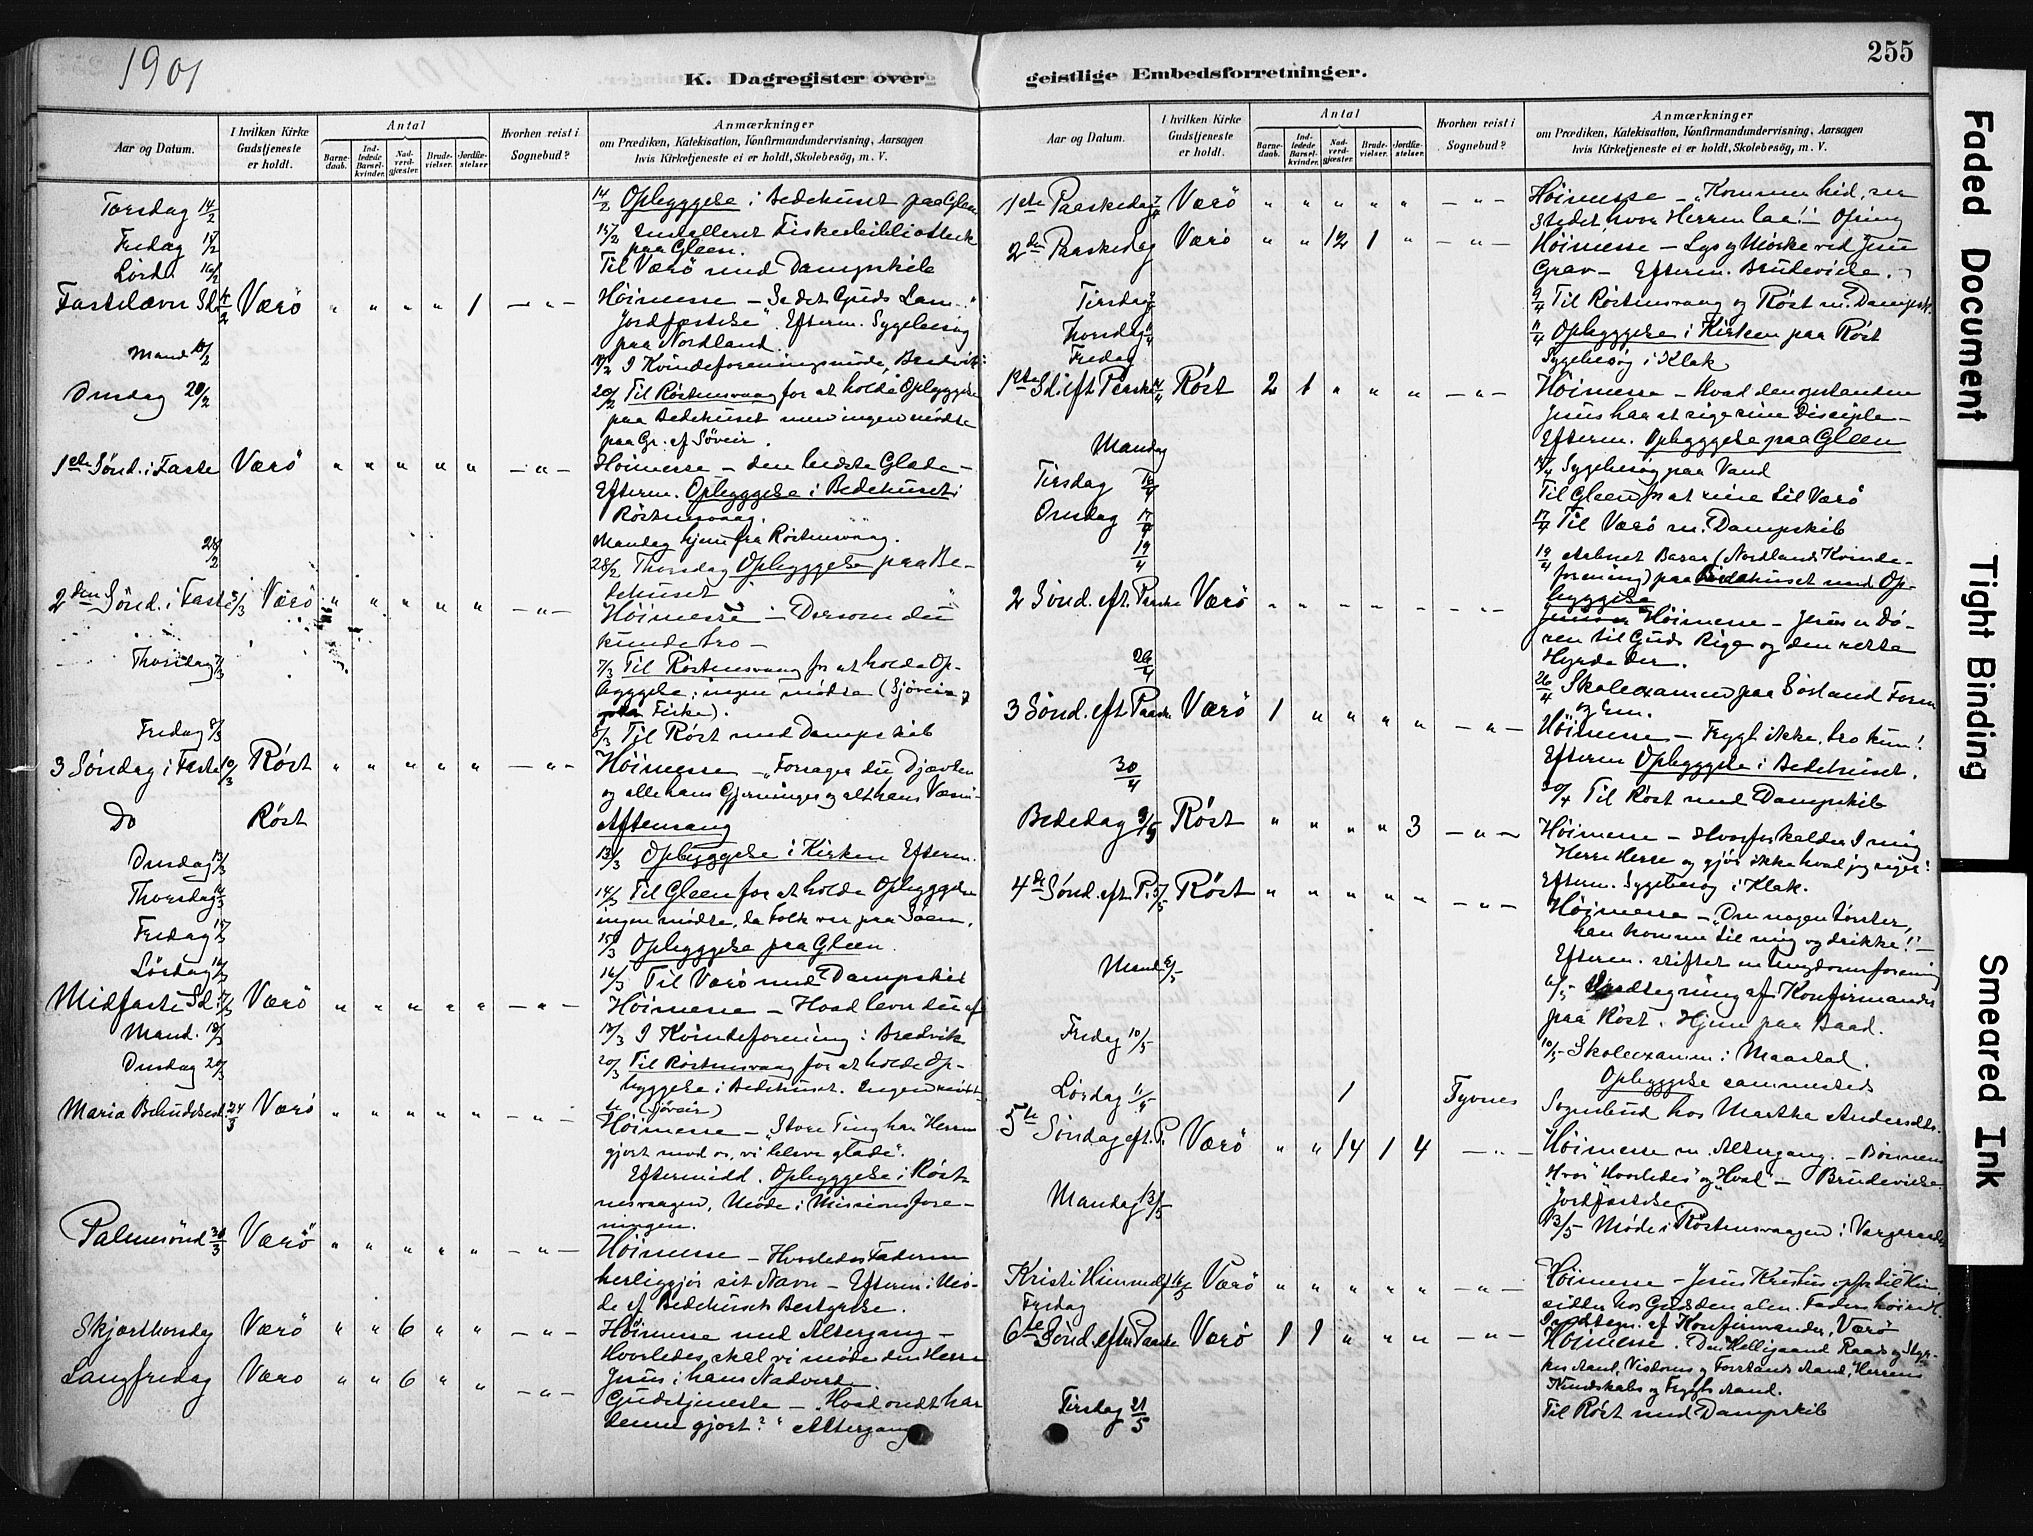 1901
K. Dagregister over geistlige Embedsforretninger.
255
Aar og Datum.
I hvilken Kirke Gudstjeneste er holdt.
Antal
Barnedaab.
Indledede Barselkvinder.
Nadverdgjæster.
Brudevielser.
Jordfæstelser.
Hvorhen reist i Sognebud?
Anmærkninger
om Prædiken, Katekisation, Konfirmandundervisning, Aarsagen
hvis Kirketjeneste ei er holdt, Skolebesøg, m. V.
Torsdag 14/2
14/2 Opbyggelse i Bedehuset paa Gleen
Fredag 15/2
15/2 Installeret Fiskerbibliothek
paa Gleen.
Lørd. 16/2
Til Værö med Dampskib
Fastelavn Sd. Værö " " " " 1 — " — Höimesse — Se det Guds Lam
Jordfæstelse. Efterm. Sygebesøg
paa Nordland.
Mand 18/2
I Kvindeforeningsmøde,
Onsdag 20/2
20/2 Til Röstnesvaag for at holde Opbyggelse
paa Bedehuset men ingen mødte
paa Gr. af Söveir.
1ste Sönd. i Faste Værö " " " " " — " — Höimesse — den bedste Glæde —
Efterm. Opbyggelse i Bedehuset i
Röstnesvaag.
Mandag hjem fra Röstnesvåg.
28/2
28/2 Thorsdag Opbyggelse paa Be-
dehuset
2den Sönd. i Faste 3/3 Værö " " " " " — " — Höimesse — Dersom du
kunde tro —
Thorsdag 7/3
7/3 Til Röstnesvaag for at holde Op-
byggelse; ingen mödte (Sjöveir og
Fiske).
Fredag 8/3
8/3 Til Röst med Dampskib
3 Söndag i Faste 10/3 Röst " " " " " — " — Höimesse — "Forsager du Djævlen
og alle hans Gjerninger og alt hans Væsen
Do Röst
Aftensang
Onsdag 13/3
13/3 Opbyggelse i Kirken Efterm.
Thorsdag 14/3
14/3 Til Gleen for at holde Opbyggelse
ingen mödte, da Folk var paa Söen.
Fredag 15/3
15/3 Opbyggelse paa Gleen.
Lörsdag 16/3
16/3 Til Værö med Dampskib
Midfaste Sd. 17/3 Værö " " " " " — " — Höimesse — Hvad lever du af
Mand. 18/3
18/3 I Kvindeforening i Bredvik
Onsdag 20/3
20/3 Til Röstnesvaag for at holde Op-
byggelse i Bedehuset. Ingen mödt
te (Söveir)
Maria Bebudelsesd. 24/3 Værö " " " " " " — Höimesse — "Store Ting har Herren
gjort mod os, vi bleve glade".
Eftermidd. Opbyggelse i Röst-
nesvaagen. Möde i Missionsfore-
ningen.
Palmesönd 31/3 Værö " " " " " — " — Höimesse — Hvorledes Faderen
herliggjör sit Navn — Efterm. i Mö-
de af Bedehusets Bestyrelse.
Skjærthorsdag Værö " " 6 " " — " — Höimesse med Altergang —
Hvorledes skal vi møde den Herre
Jesus i hans Nadverd
Langfredag Værö " " 6 " " — " — Gudstjeneste — "Hvad ondt har
denne gjort?" Altergang
Aar og Datum.
I hvilken Kirke Gudstjeneste er holdt.
Antal
Barnedaab.
Indledede Barselkvinder.
Nadverdgjæster.
Brudevielser.
Jordfæstelser.
Hvorhen reist i Sognebud?
Anmærkninger
om Prædiken, Katekisation, Konfirmandundervisning, Aarsagen
hvis Kirketjeneste ei er holdt, Skolebesøg, m. V.
1ste Paaskedag 7/4 Værö " " " " " — " — Höimesse — "Kommer hid, ser
Stedet, hvor Herren laa!"
2den Paaskedag Værö " " 12 1 " — " — Höimesse — Lys og Mörke ved Jesu
Grav — Efterm. Brudevielse.
Tirsdag 9/4
9/4 Til Röstnesvaag og Röst m. Dampsk.
Thorsdag 11/4
11/4 Opbyggelse i Kirken paa Röst
Fredag
Sygebesög i Klak
1ste Sd. eft. Paaske 14/4 Röst 2 1 " " " — " — Höimesse — Hvad den opstandne
Jesus har at sige sine Disciple —
Efterm. Opbyggelse paa Gleen
Mandag
Sygebesög paa Vand
Tirsdag 16/4
Til Gleen for at reise til Værö
Onsdag 17/4
17/4 Til Værö m. Dampskib
19/4
19/4 Aabnet Basar (Nordlands Kvinde-
forening) paa Bedehuset med Op-
byggelse
2 Sönd. eft. Paaske Værö " " " " " — " — Höimesse — Jesus er Dö-
ren til Guds Rige og den rette
Hyrde der.
26/4
26/4 Skoleexamen paa Sörland Form
og Em.
3 Sönd. eft. Paaske Værö 1 " " " " — " — Höimesse — Frygt ikke, tro kun!
Efterm Opbyggelse i Bedehuset.
30/4
30/4 Til Röst med Dampskib
Bededag 3/5 Röst " " " " 3 — " — Höimesse — Hvorfor kalder I mig
Herre Herre og gjör ikke hvad jeg siger!
Efterm. Sygebesög i Klak.
4de Sönd. eft. P. 5/5 Röst " " " " " — " — Höimesse — "Om nogen törster,
han komme til mig og drikke!" —
Efterm. stiftet en Ungdomsforening
Mand 6/5
6/5 Indtegning af Konfirmander
paa Röst. Hjem paa Baad.
Fredag 10/5
10/5 Skoleexamen i Maastad.
Opbyggelse sammesteds
Lördag 11/5 1 Tyvnes Sognebud hos Marthe Andersdtr.
5te Söndag eft. P. Værö " " 14 1 4 — " — Höimesse m. Altergang. — Bönnens
Hvor "Hvorledes" og "Hvad" — Brudevielse
Jordfæstelse
Mandag 13/5
13/5 Möde i Röstnesvaagen i
Kristi Himmelf. 16/5 Værö " " " " " — " — Höimesse — Jesus Kristus opf. til Him.
sidder hos Guds den alm. Faders höire H.
Fredag
Indtegn. af Konfirmander, Værö
6te Sönd. efter Paaske Værö 1 1 " " " — " — Höimesse. Den Helligaand Raads og Styr-
kes Aand, Visdoms og Forstands Aand, Herrens
Kundskabs og Frygts Aand.
Tirsdag 21/5
Til Röst med Dampskib
Faded Document
Tight Binding
Smeared Ink